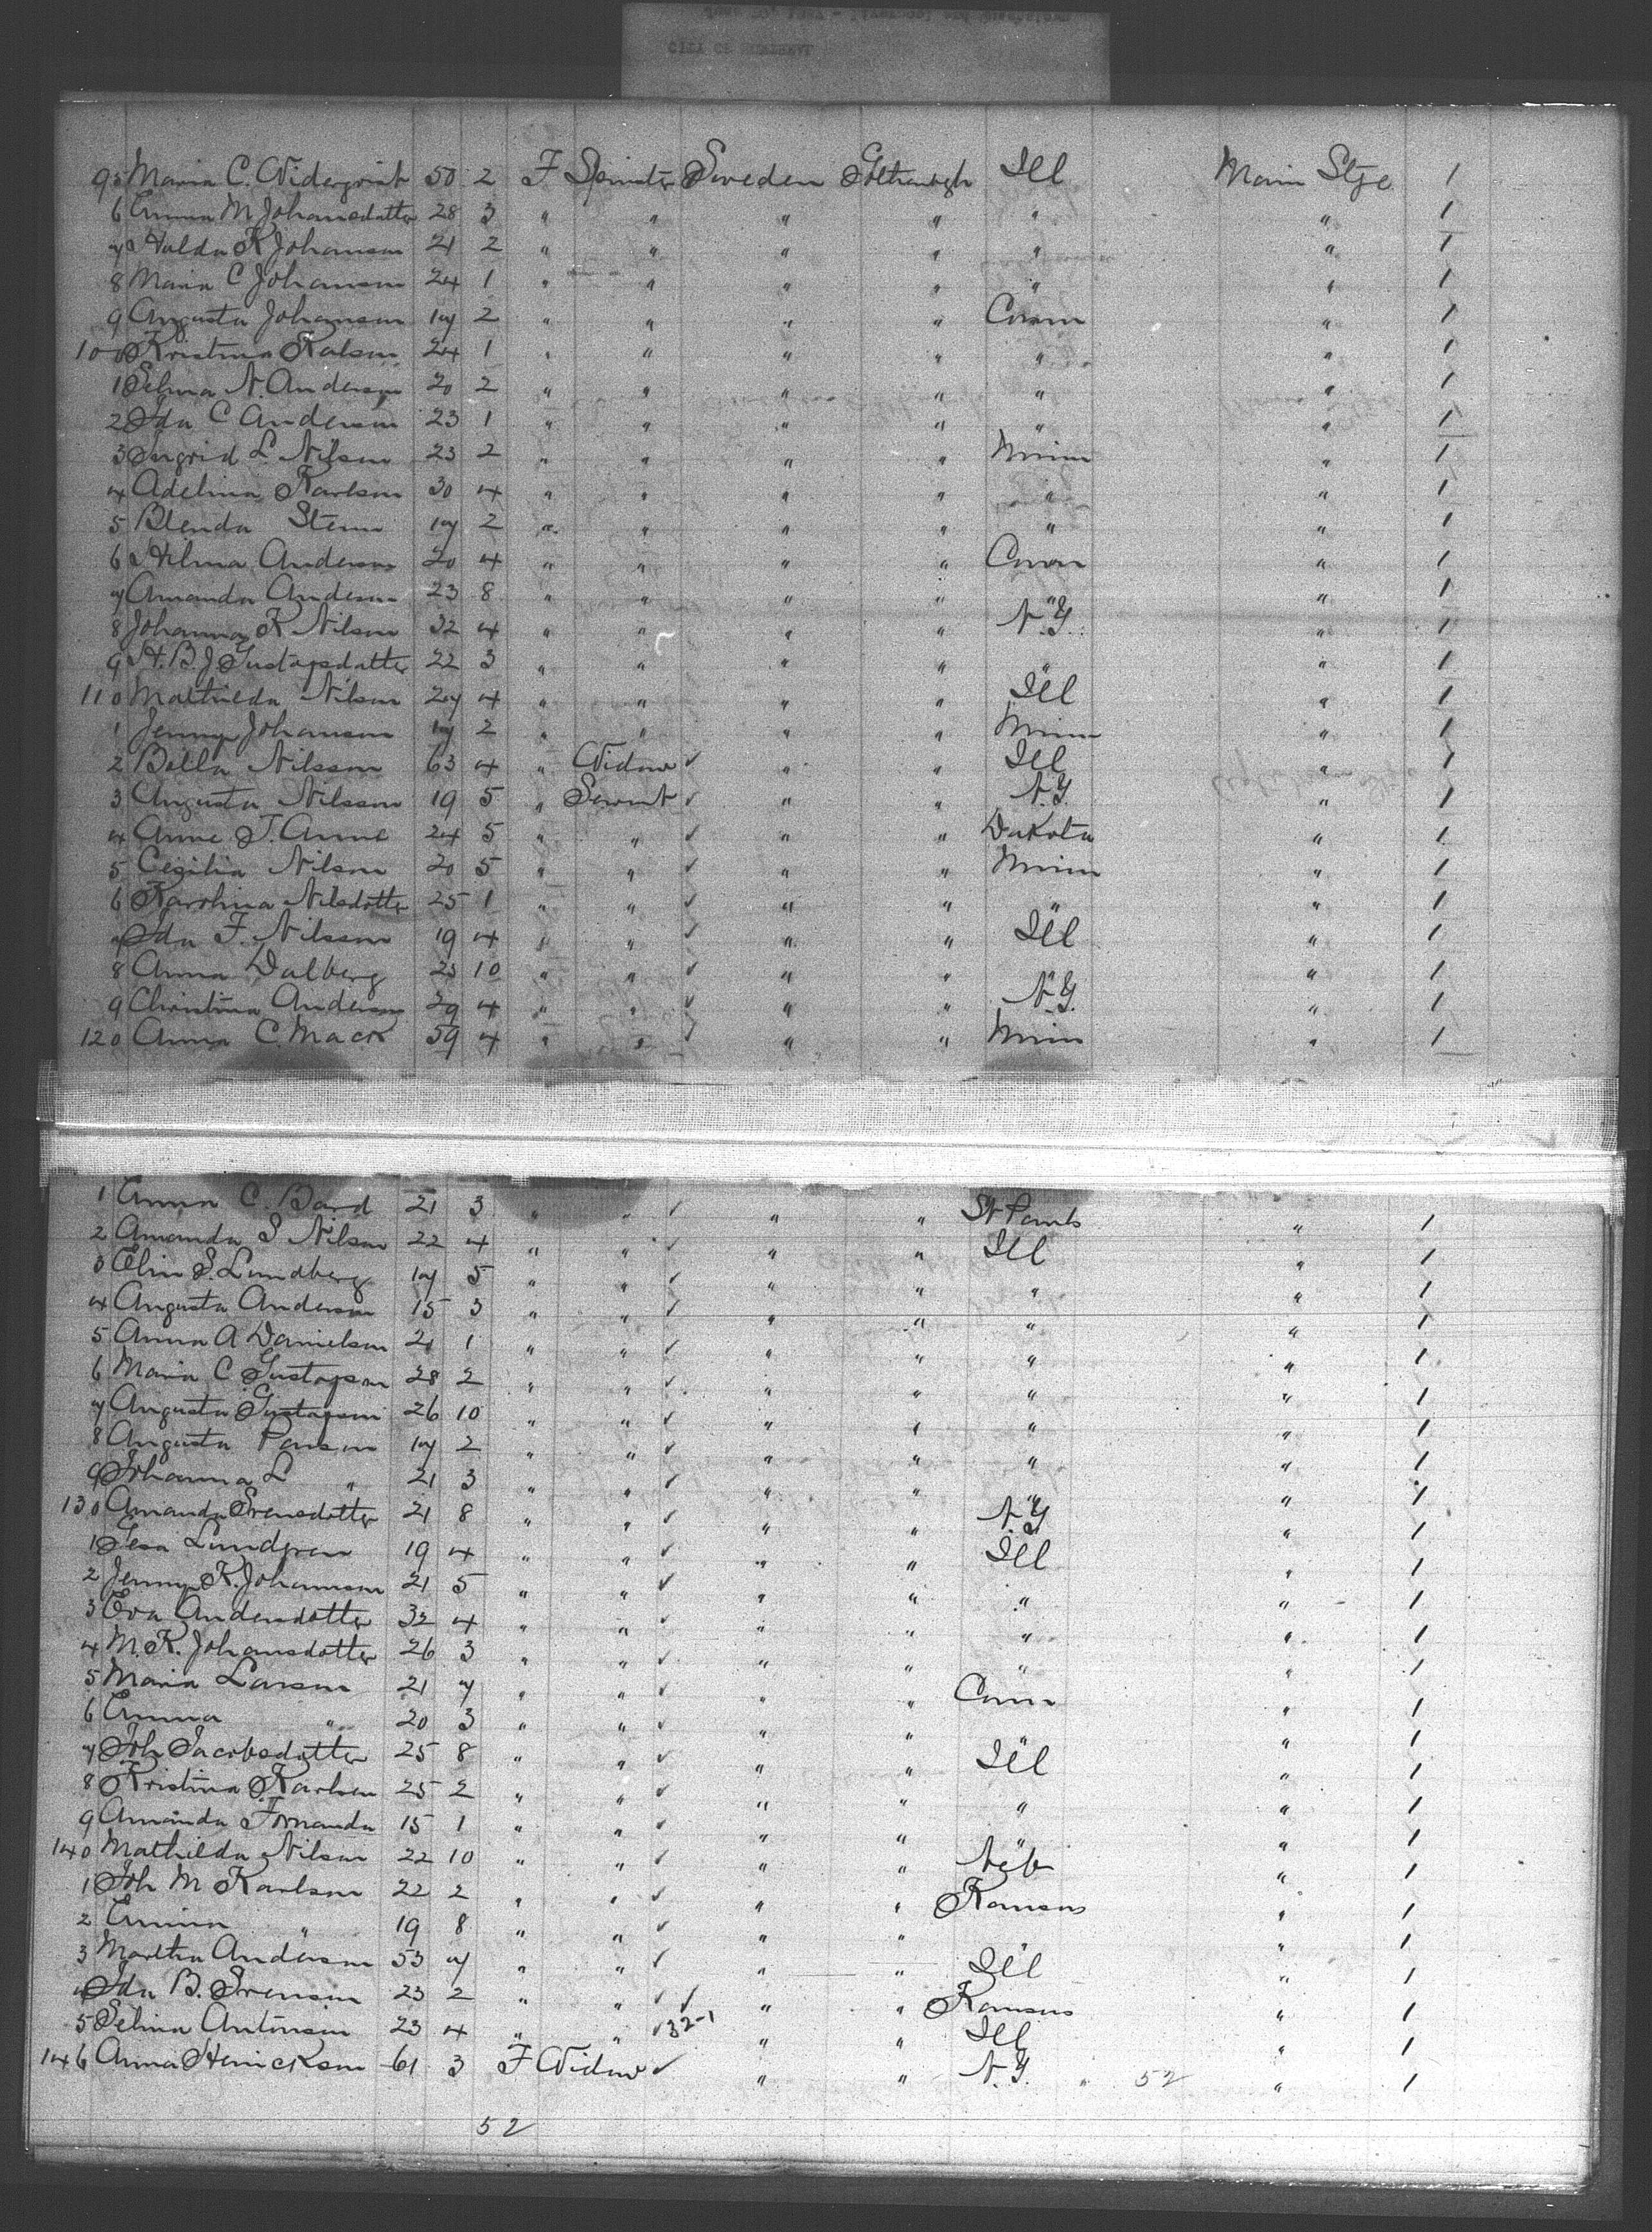 95 Maria C. Widerqvist 50 2 F Spinster Sweden Gothenbugh Ill Main Stge 1
6 Emma M Johansdotter 28 3 " " " " " " 1
7 Hulda K Johanson 21 2 " " " " " " 1
8 Maria C Johanson 24 1 " " " " " " 1
9 Augusta Johanson 17 2 " " " " Conn " 1
100 Kristina Kalson 24 1 " " " " " " 1
1 Selma N. Anderson 20 2 " " " " " " 1
2 Ida C Anderson 23 1 " " " " " " 1
3 Ingrid L. Nilson 23 2 " " " " Minn " 1
4 Adelina Karlson 30 4 " " " " " " 1
5 Blenda Stenn 17 2 " " " " " " 1
6 Hilma Anderson 20 4 " " " " Conn " 1
7 Amanda Anderson 23 8 " " " " " " 1
8 Johanna K Nilson 32 4 " " " " N.Y. " 1
9 H.B.J Gustafsdotter 22 3 " " " " " " 1
110 Mathilda Nilson 27 4 " " " " Ill " 1
1 Jenny Johanson 17 2 " " " " Minn " 1
2 Bella Nilsson 63 4 " Widow ✓ " " Ill " 1
3 Augusta Nilsson 19 5 " Servnt ✓ " " N.Y. " 1
4 Anne J. Anne 24 5 " " ✓ " " Dakota " 1
5 Cecilia Nilson 20 5 " " ✓ " " Minn " 1
6 Karolina Nilsdotter 25 1 " " ✓ " " " " 1
7 Ida F. Nilsson 19 4 " " ✓ " " Ill " 1
8 Anna Dalberg 23 10 " " ✓ " " " " 1
9 Christina Anderson 29 4 " " ✓ " " N.Y. " 1
120 Anna C. Mack 59 4 " " ✓ " " Minn " 1
1 Anna C. Bard 21 3 " " ✓ " " St Pauls " 1
2 Amanda S Nilson 22 4 " " ✓ " " Ill " 1
3 Elin S. Lundberg 17 5 " " ✓ " " " " 1
4 Augusta Anderson 15 3 " " ✓ " " " " 1
5 Anna A Danielson 21 1 " " ✓ " " " " 1
6 Maria C Gustafson 28 2 " " ✓ " " " " 1
7 Augusta Gustafson 26 10 " " ✓ " " " " 1
8 Augusta Paulson 17 2 " " ✓ " " " " 1
9 Johanna L " 21 3 " " ✓ " " " " 1
130 Amanda Svensdotter 21 8 " " ✓ " " N.Y " 1
1 Lundgren 19 4 " " ✓ " " Ill " 1
2 Jenny K. Johannson 21 5 " " ✓ " " " " 1
3 Eva Andersdotter 32 4 " " ✓ " " " " 1
4 M.K. Johansdotter 26 3 " " ✓ " " " " 1
5 Maria Larson 21 7 " " ✓ " " Conn " 1
6 Emma " 20 3 " " ✓ " " " " 1
7 Joh Jacobsdotter 25 8 " " ✓ " " Ill " 1
8 Kristina Karlson 25 2 " " ✓ " " " " 1
9 Amanda Fornanda 15 1 " " ✓ " " " " 1
140 Mathilda Nilson 22 10 " " ✓ " " Neb " 1
1 Joh M Karlson 22 2 " " ✓ " " Kansas " 1
2 Emma " 19 8 " " ✓ " " " " 1
3 Martha Anderson 53 7 " " ✓ " " Ill " 1
4 Ida B. Svenson 23 2 " " ✓ ✓ " " Kansas " 1
5 Selma Antonson 23 4 " " ✓ 32-1 " " Ill " 1
146 Anna Henickson 61 3 F Widow ✓ " " N.Y. " 52 " 1
52